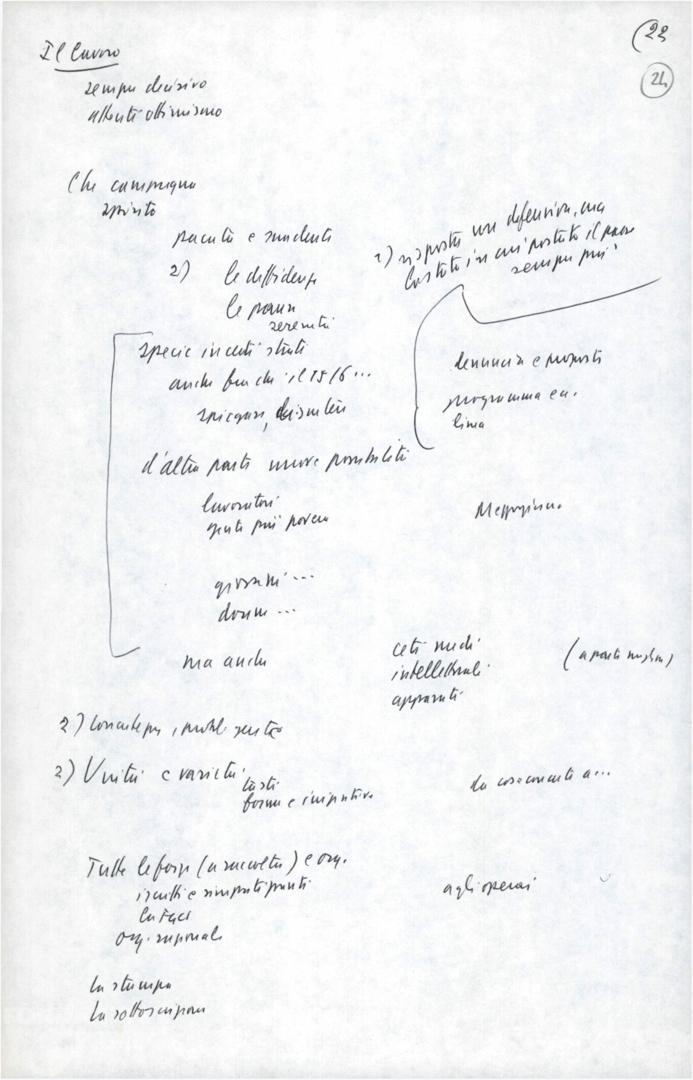 (23
24
Il lavoro
sempre decisivo
attento ottimismo
Che campagna
spirito
pacata e suadente
1) risposta non difensiva, ma
in cui portato il paese
sempre più
2) le diffidenze
le paure
serenità
specie in certi strati
anche perché il 15/6...
spiegare, discutere
denuncia e proposta
programma ea.
lima
d'altra parte nuove possibilità
lavoratori
gente più povera
Mezzogiorno
giovani ...
donne ...
ma anche
ceti medi
intellettuali
apparati
(a parte)
2) probl.
2) Unità e varietà
tasti
forme e iniziative
da cose concrete a...
Tutte le forze (a raccolta) e org.
iscritti e simpatizzanti
la FGCI
org. regionale
agli operai
la stampa
la sottoscrizione